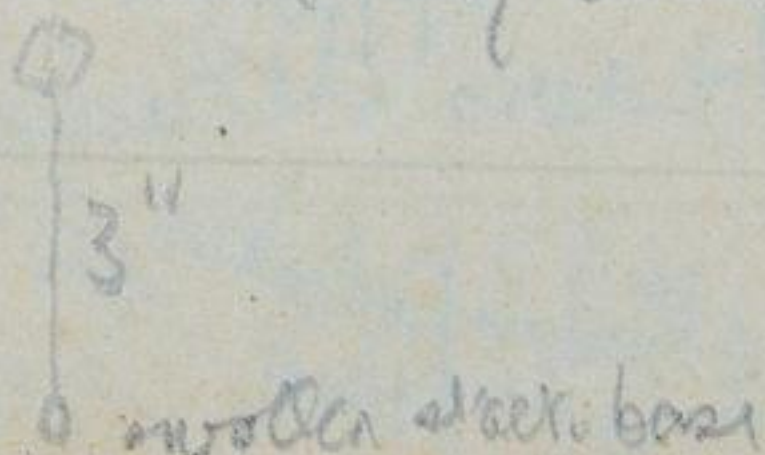 3"
swollen stalk. base